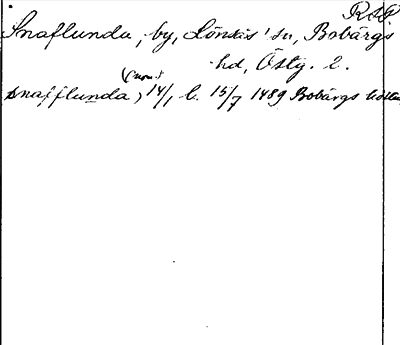 RAP
Snaflunda, by, Lönsås' sn, Bobärgs
hd, Östg. 2.
snafflunda, 14/1 b. 15/7 1489 Bobärgs